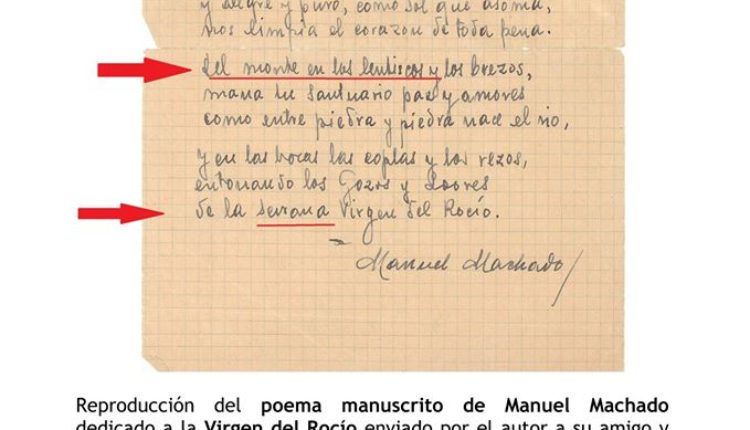 y alegre y puro, como sol que asoma,
nos limpia el corazón de toda pena.
del monte en los lentiscos y los brezos,
mana tu santuario paz y amores
como entre piedra y piedra nace el río,
y en las bocas las coplas y los rezos,
entonando los Gozos y Loores
de la Serrana Virgen del Rocío.
Manuel Machado
Reproducción del poema manuscrito de Manuel Machado
dedicado a la Virgen del Rocío enviado por el autor a su amigo y